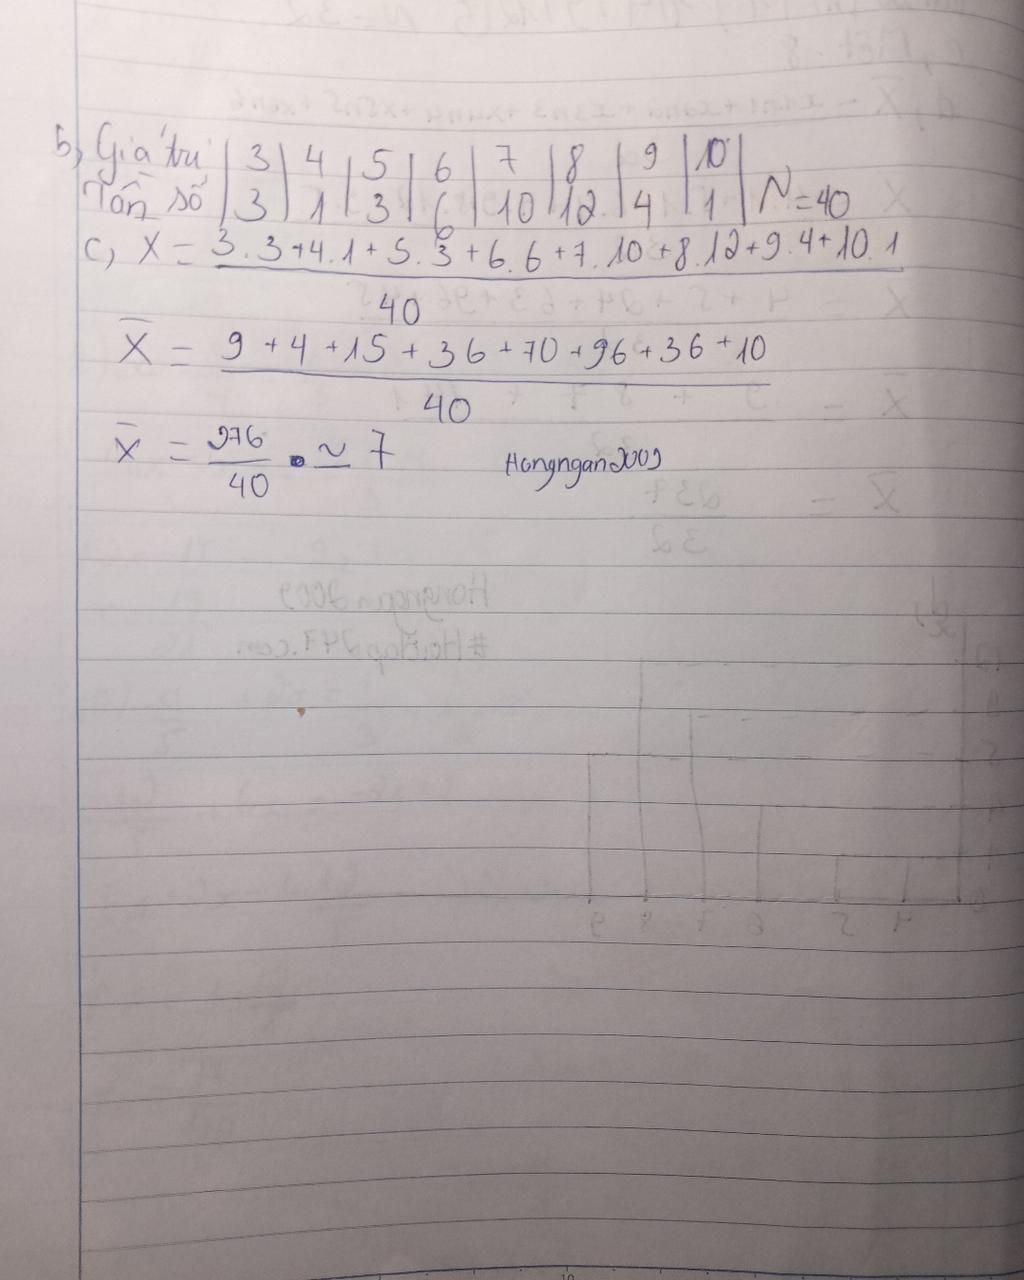 b, Giá trị | 3 | 4 | 5 | 6 | 7 | 8 | 9 | 10 |
Tần số | 3 | 1 | 3 | 6 | 10 | 12 | 4 | 1 | N=40
c, X = 3.3+4.1+5.3+6.6+7.10+8.12+9.4+10.1
40
X̄ = 9+4+15+36+70+96+36+10
40
X̄ = 276/40 ≃ 7
Hongngan2009